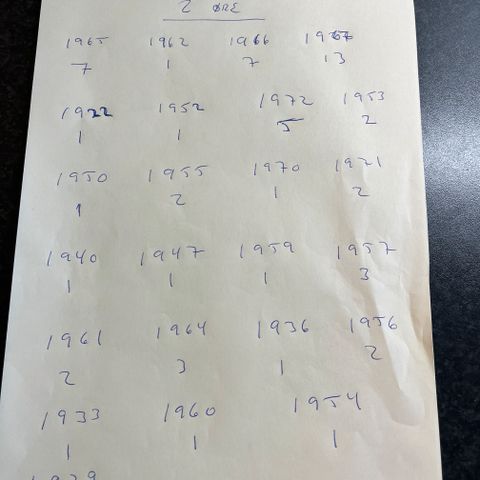 2 ØRE
1965 1962 1966
7 1 7 13
1922 1952 1972 1953
1 1 5 2
1950 1955 1970 1921
1 2 1 2
1940 1947 1959 1957
1 1 1 3
1961 1964 1936 1956
2 3 1 2
1933 1960 1954
1 1 1